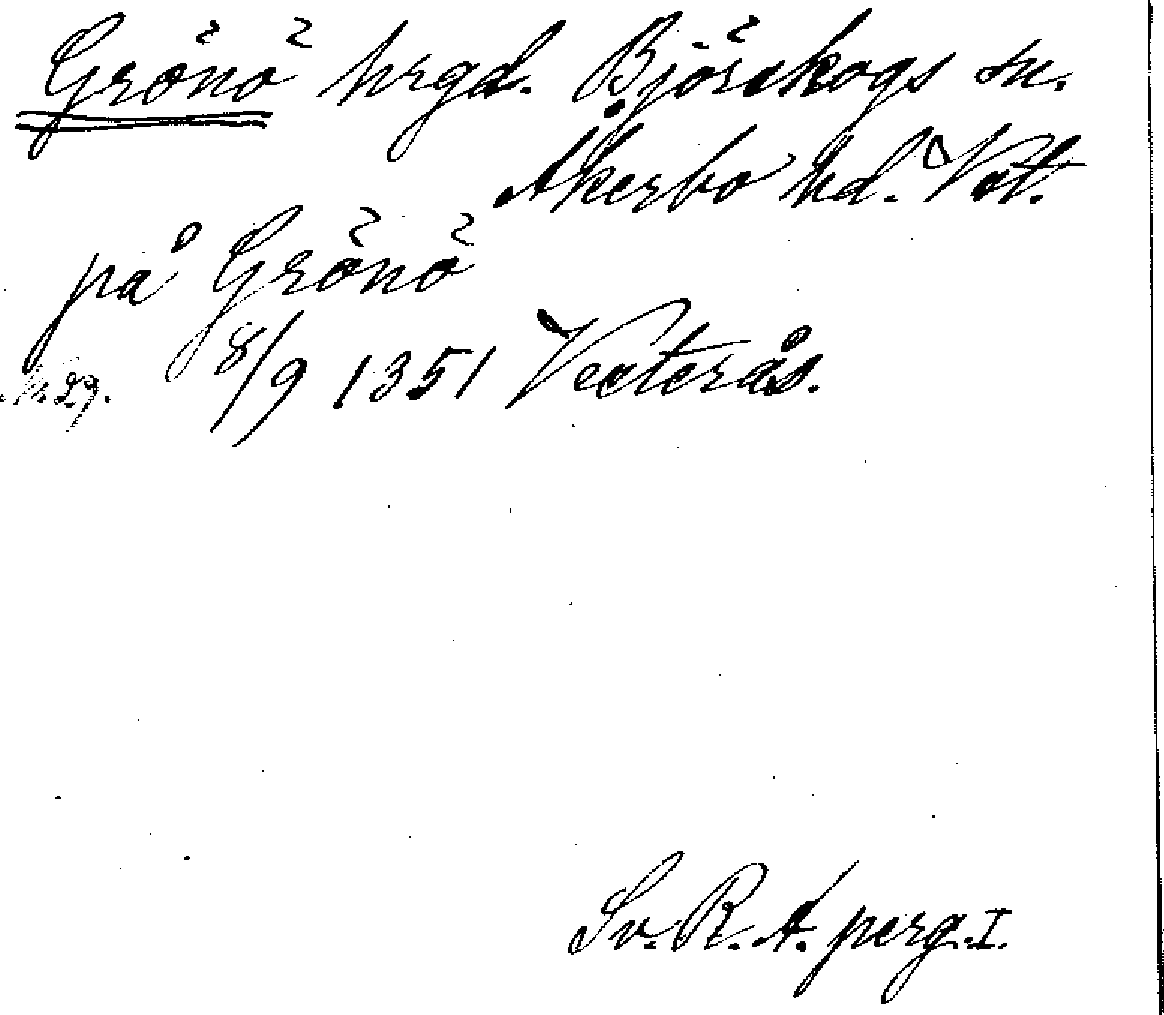 Grönö hrgd. Björskogs sn.
Åkerbo hd. Vstl.
på Grönö
8/9 1351 Vesterås.
N. 29.
Sv. R. A. perg. I.